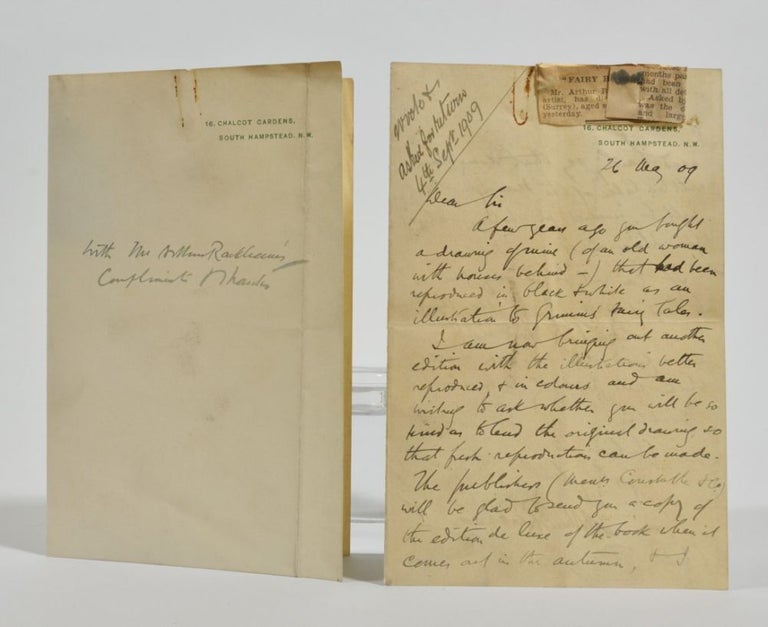 16. CHALCOT GARDENS,
SOUTH HAMPSTEAD. N.W.
With Mr Arthur Rackham's
Compliments & Thanks
asked for return
4th Sept. 1909
"FAIRY
Mr. Arthur
artist, has
(Surrey), aged
yesterday.
months
been
with all
Asked
was the
and
16. CHALCOT GARDENS,
SOUTH HAMPSTEAD. N.W.
26 May 09
Dear Sir
A few years ago you bought
a drawing of mine (of an old woman
with houses behind —) that had been
reproduced in black & white as an
illustration to Grimm's Fairy Tales.
I am now bringing out another
edition with the illustrations better
reproduced & in colours and am
writing to ask whether you will be so
kind as to lend the original drawing so
that fresh reproductions can be made.
The publishers (Messrs Constable & Co)
will be glad to send you a copy of
the edition de luxe of the book when it
comes out in the autumn, & I